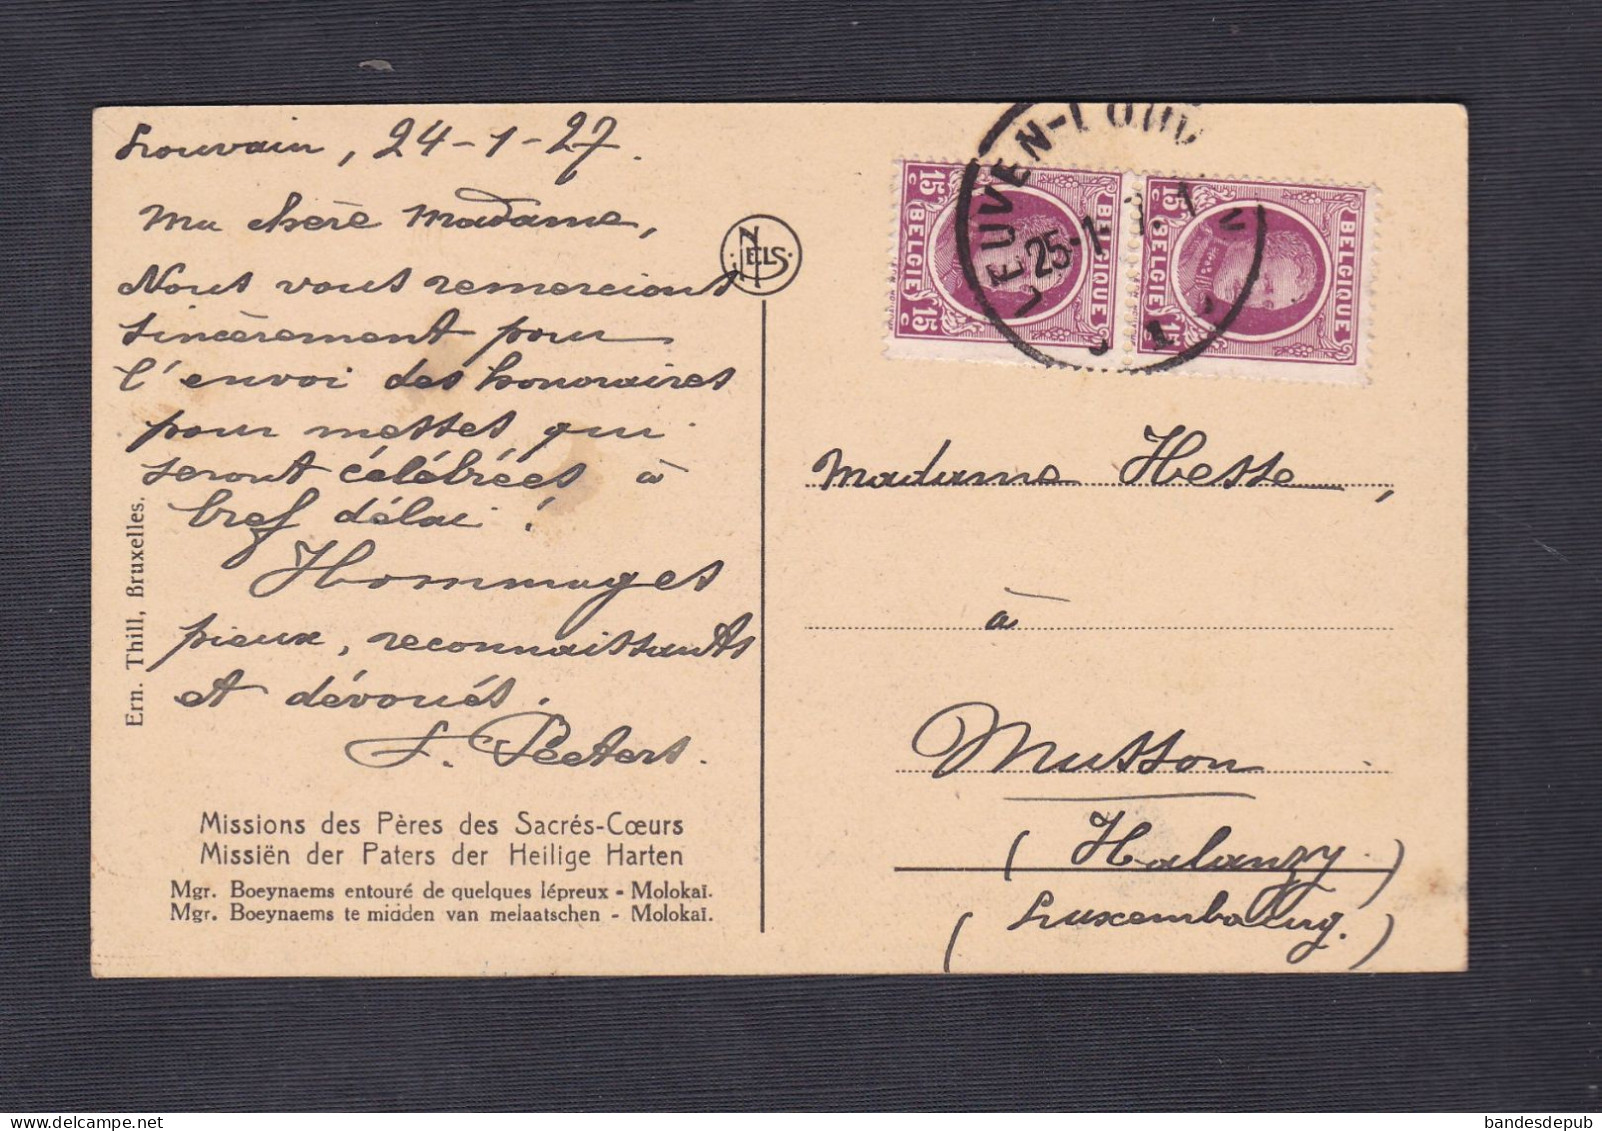 Louvain, 24-1-27.
Ma chère Madame,
Nous vous remercions
sincèrement pour
l'envoi des honoraires
pour messes qui
seront célébrées à
bref délai !
Hommages
pieux, reconnaissants
et dévoués.
Peeters.
Missions des Pères des Sacrés-Cœurs
Missiën der Paters der Heilige Harten
Mgr. Boeynaems entouré de quelques lépreux - Molokaï.
Mgr. Boeynaems te midden van melaatschen - Molokaï.
Ern. Thill, Bruxelles.
NELS
15 c BELGIE 15 c
BELGIQUE
15 c BELGIE 15
BELGIQUE
LEUVEN-LOUV
25-1
Madame Hesse,
à
Musson
(Halanzy.)
(Luxembourg.)
bandesdepub